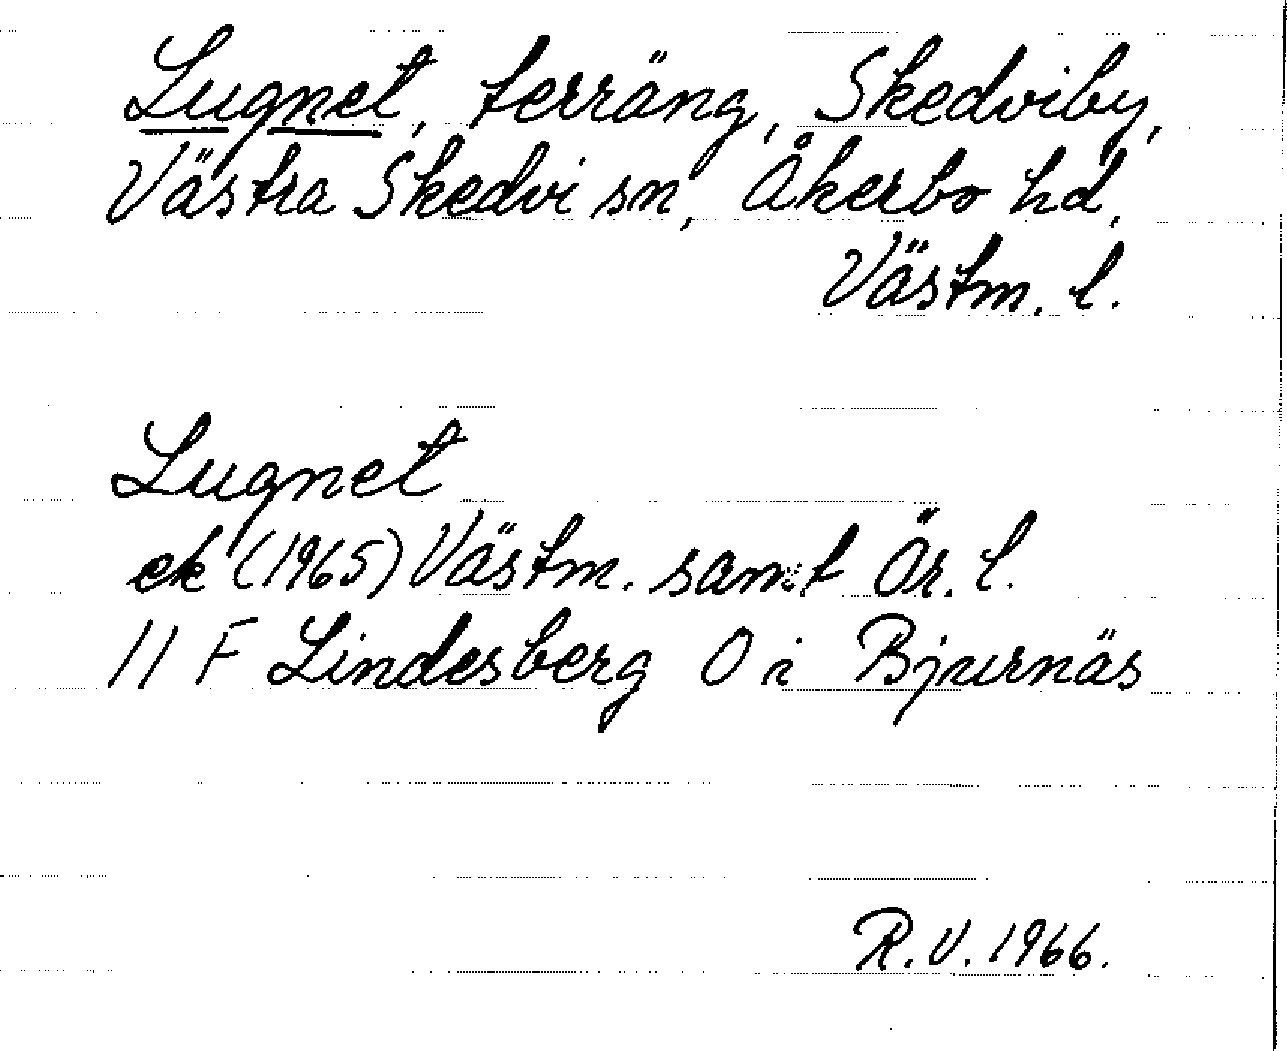 Lugnet, terräng, Skedviby,
Västra Skedvi sn, Åkerbo hd,
Västm. l.
Lugnet
ek (1965) Västm. samt Ör. l.
11 F Lindesberg O i Bjurnäs
R.V. 1966.